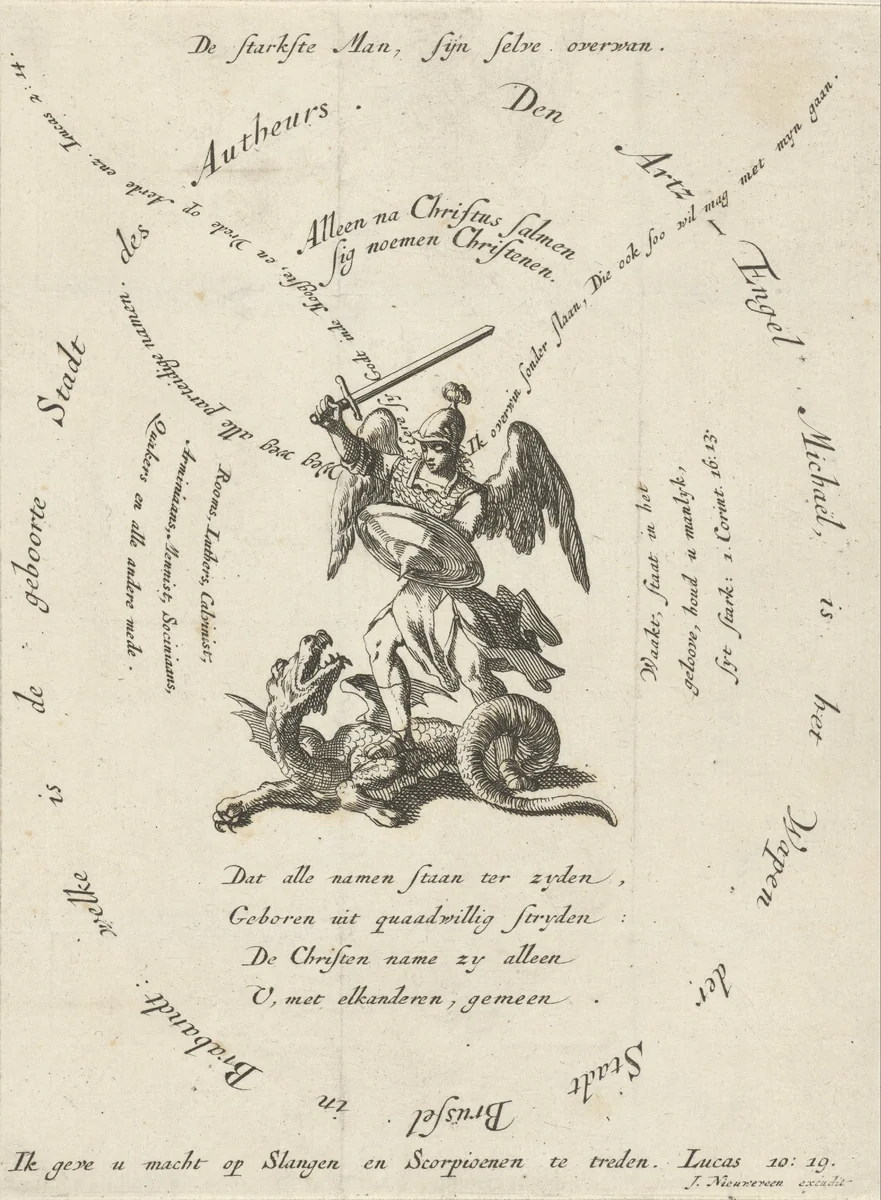 De starkste Man, sijn selve overwan.
Den Artz-Engel Michaël, is het Wapen der Stadt Brussel in Brabandt: welke is de geboorte Stadt des Autheurs.
Alleen na Christus salmen
sig noemen Christenen.
Eere sy Godt inde Hoogste, en Vrede op Aerde enz. Lucas 2: 14.
Ik overwin sonder slaan, Die ook soo wil mag met myn gaan.
Weg weg alle parteidige namen.
Rooms, Luthers, Calvinist,
Arminiaans, Mennist, Sociniaans,
Quakers en alle andere mede.
Waakt, staat in het
geloove, houd u manlyk,
syt stark: 1. Corint. 16: 13.
Dat alle namen staan ter zyden,
Geboren uit quaadwillig stryden:
De Christen name zy alleen
U, met elkanderen, gemeen.
Ik geve u macht op Slangen en Scorpioenen te treden. Lucas 10: 19.
J. Nieuwereen excudit